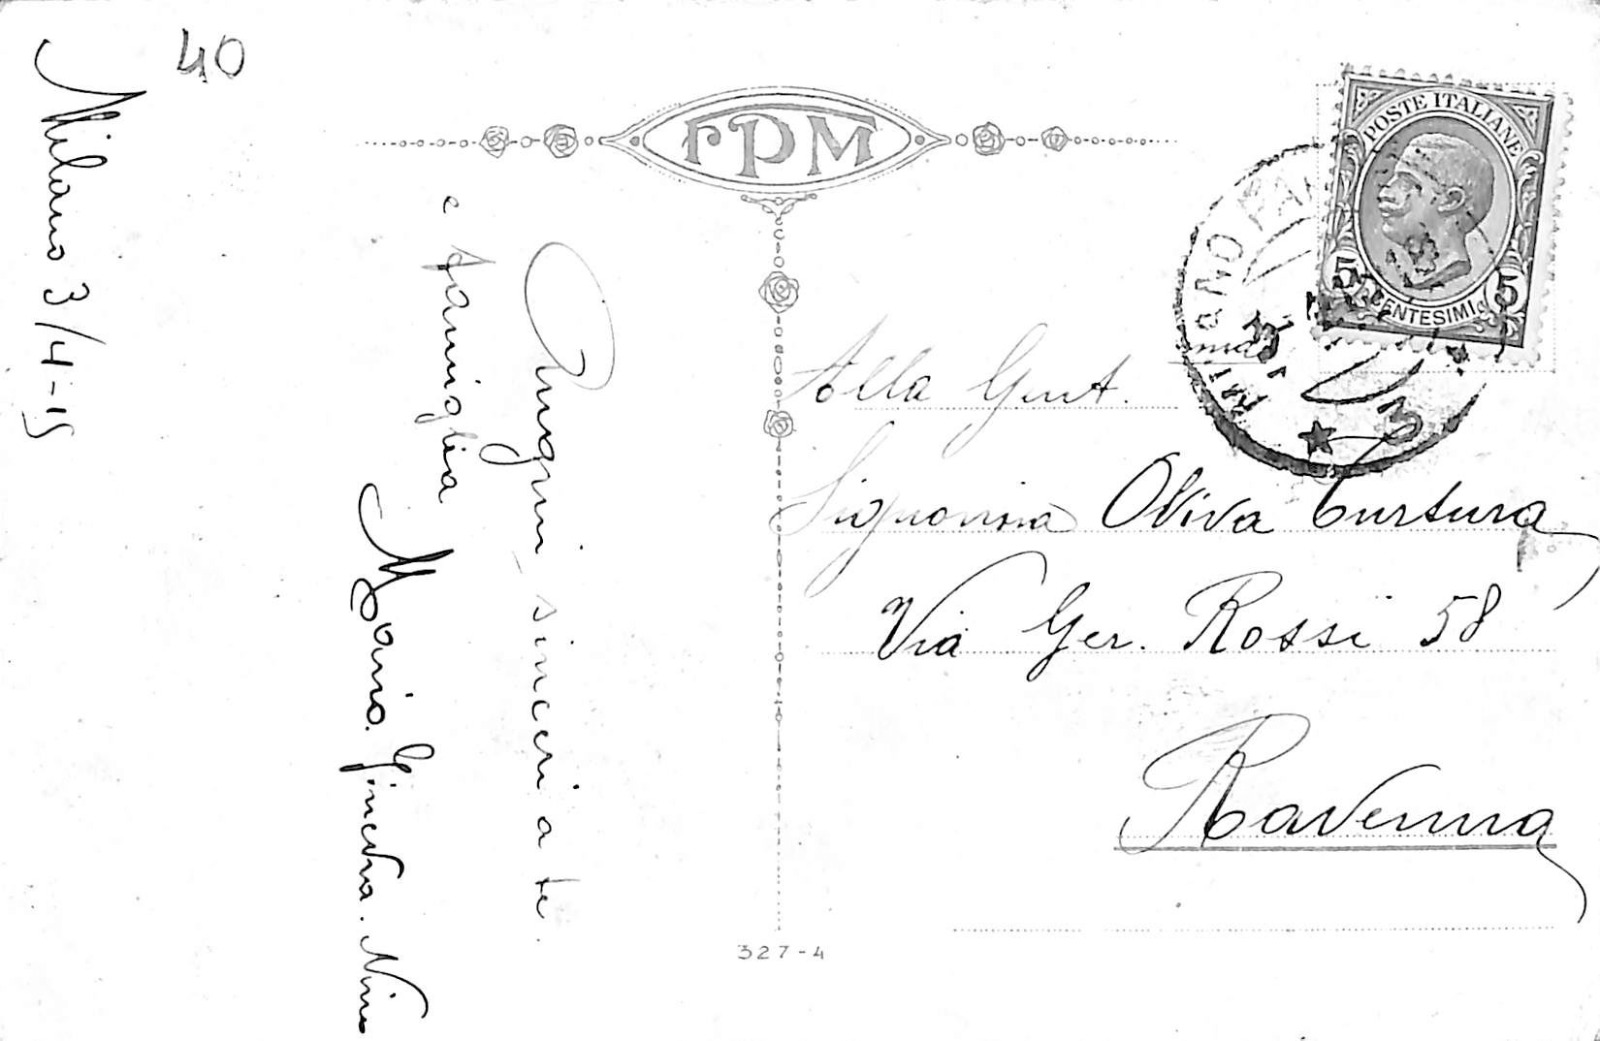 40
Milano 3/4-15
Auguri sinceri a te
e famiglia
Mario. Ginevra. Nino
rPM
327-4
POSTE ITALIANE
5 5
CENTESIMI
MILANO
3
Alla Gent.ma
Signorina Oliva
Via Ger. Rossi 58
Ravenna